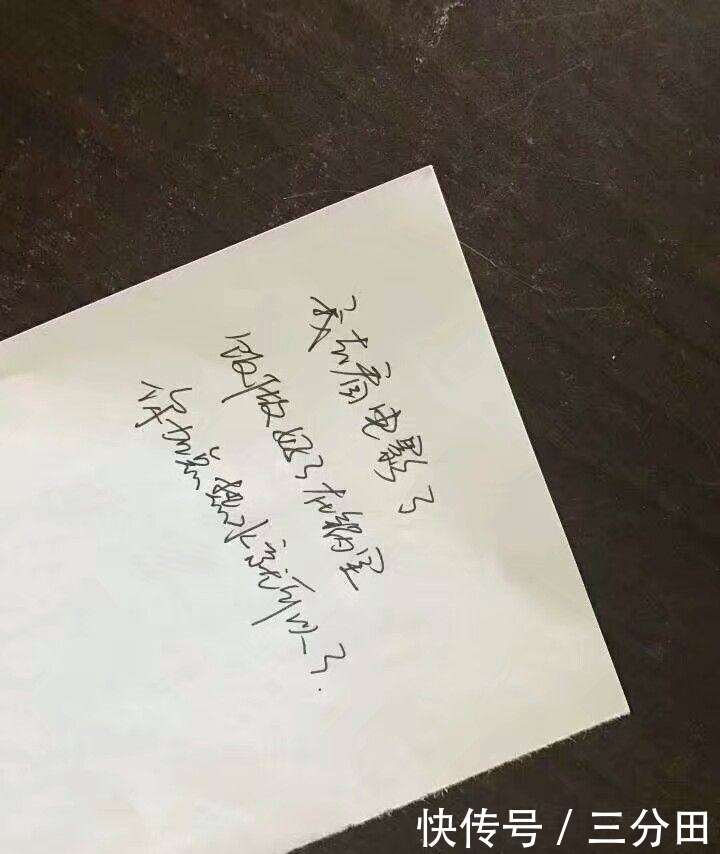 我去看电影了
饭做好了在锅里
你加点热水就可以了.
快传号 / 三分田